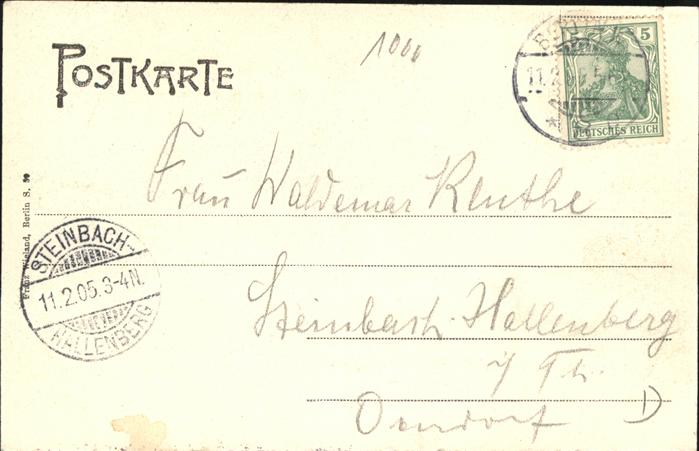 POSTKARTE
1000
5
DEUTSCHES REICH
Frau Waldemar Renthe
Franz Wieland, Berlin S. 59
STEINBACH-
11.2.05.3-4N.
HALLENBERG
Steinbach-Hallenberg
i/ Th.
Oberdorf
D